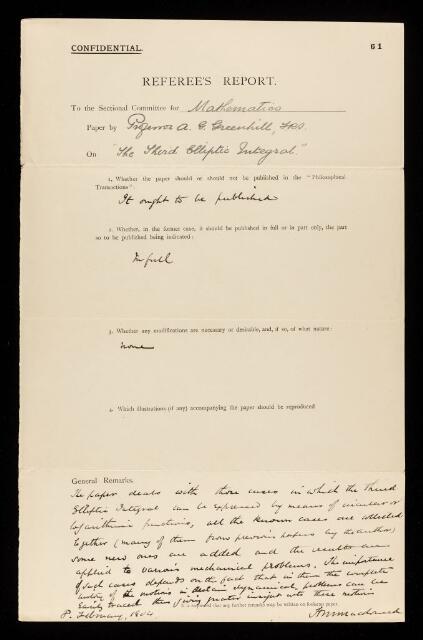 CONFIDENTIAL.
61
REFEREE'S REPORT.
To the Sectional Committee for Mathematics
Paper by Professor A. G. Greenhill, FRS.
On "The Third Elliptic Integral."
1. Whether the paper should or should not be published in the "Philosophical
Transactions":
It ought to be published
2. Whether, in the former case, it should be published in full or in part only, the part
so to be published being indicated:
In full
3. Whether any modifications are necessary or desirable, and, if so, of what nature:
none
4. Which illustrations (if any) accompanying the paper should be reproduced
General Remarks.
The paper deals with those cases in which the Third
Elliptic Integral can be expressed by means of circular or
logarithmic functions, all the known cases are collected
together (many of them from previous papers by the author)
some new ones are added and the results are
applied to various mechanical problems. The importance
of such cases depends on the fact that in them the complete
history of the motions in certain dynamical problems can be
easily traced thus giving greater insight into these motions
It is requested that any further remarks may be written on foolscap paper.
8. February, 1904